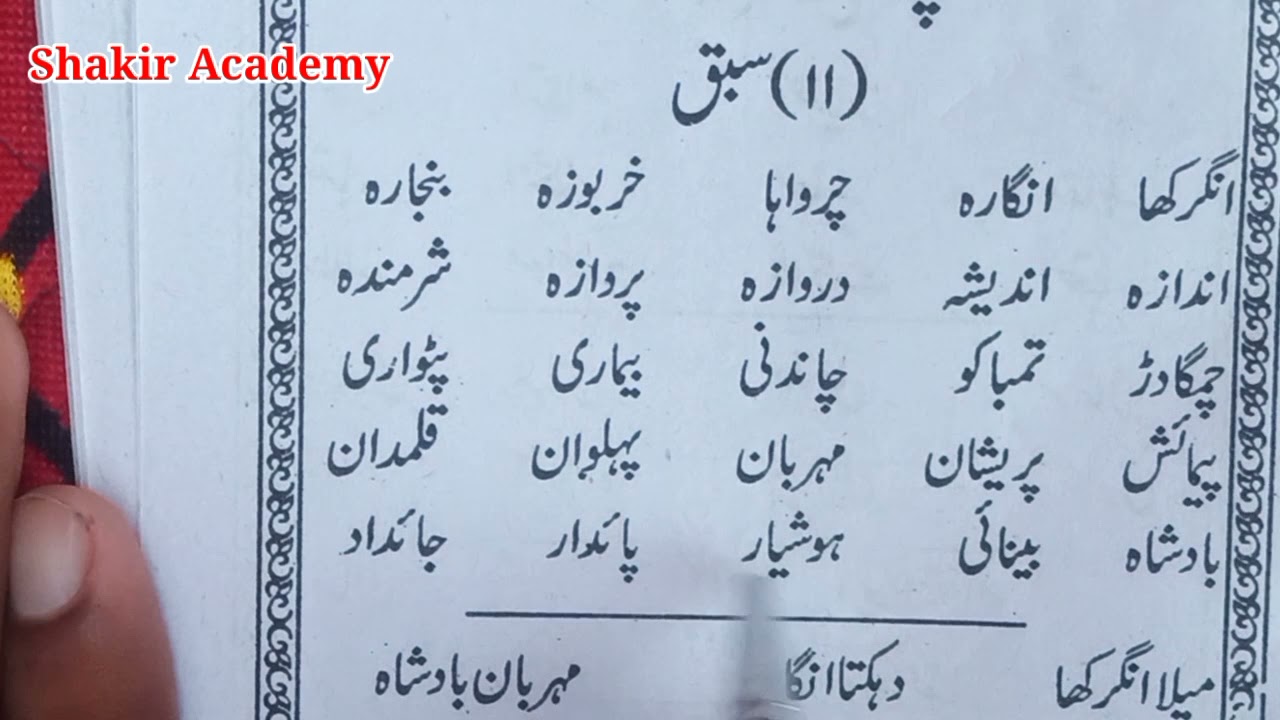 Shakir Academy
(۱۱) سبق
انگرکھا انگارہ چرواہا خربوزہ بنجارہ
اندازہ اندیشہ دروازہ پردازہ شرمندہ
چمگادڑ تمباکو چاندنی بیماری پٹواری
پیمائش پریشان مہربان پہلوان قلمدان
بادشاہ بینائی ہوشیار پائدار جائداد
میلا انگرکھا دہکتا انگا مہربان بادشاہ